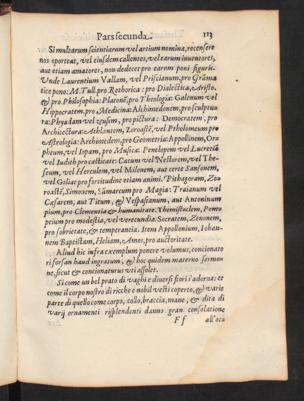 Pars secunda. 113
Si multarum scientiarum vel artium nomina, recensere
nos oporteat, vel eiusdem callentes, vel earum inuentores,
aut etiam amatores, non dedecet pro earum poni figuris.
Unde Laurentium Vallam, vel Priscianum, pro Gramma
tice pono: M. Tull. pro Rethorica: pro Dialectica, Aristo.
& pro Philosophia: Platonē, pro Theologia: Galenum vel
Hippocratem pro Medicina: Alchimedem, pro sculptu
ra: Phydam vel pro pictura: Democratem, pro
Architectura: Athlantem, Zoroastē, vel Ptholomeum pro
Astrologia: Archimedem, pro Geometria: Appollinem, Orp
pheum, vel Iopam, pro Musica: Penelopem vel Lucretiā
vel Iudith pro castitate: Catum vel Nestorem, vel The-
seum, vel Herculem, vel Milonem, aut certe Sansonem,
vel Golias pro fortitudine etiam animi. Pithagoram, Zoro
roastē, Simonem, Samarcum pro Magia: Traianum vel
Caesarem, aut Titum, & Vespasianum, aut Antoninum
pium, pro Clementia & humanitate. Themistoclem, Pom
peium pro modestia, vel verecundia. Socratem, Zenonem,
pro sobrietate, & temperantia. Item Appollonium, Iohan-
nem Baptistam, Heliam, Amos, pro auctoritate.
Aliud hic infra exemplum ponere volumus, concionato
ri forsan haud ingratum, & hoc quidem materno sermo
ne, sicut & concionaturus vti assolet.
Si come un bel prato di vaghi e diuersi fiori s'adorna: et
come il corpo nostro di ricche e nobil vesti coperto, & varie
parte di quello come corpo, collo, braccia, mane, & dita di
varij ornamenti risplendenti danno gran consolatione
Ff all'occu